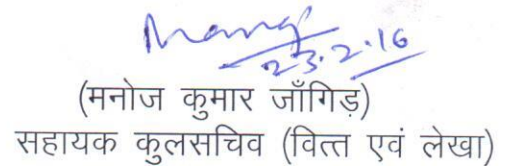 23.2.16
(मनोज कुमार जाँगिड़)
सहायक कुलसचिव (वित्त एवं लेखा)